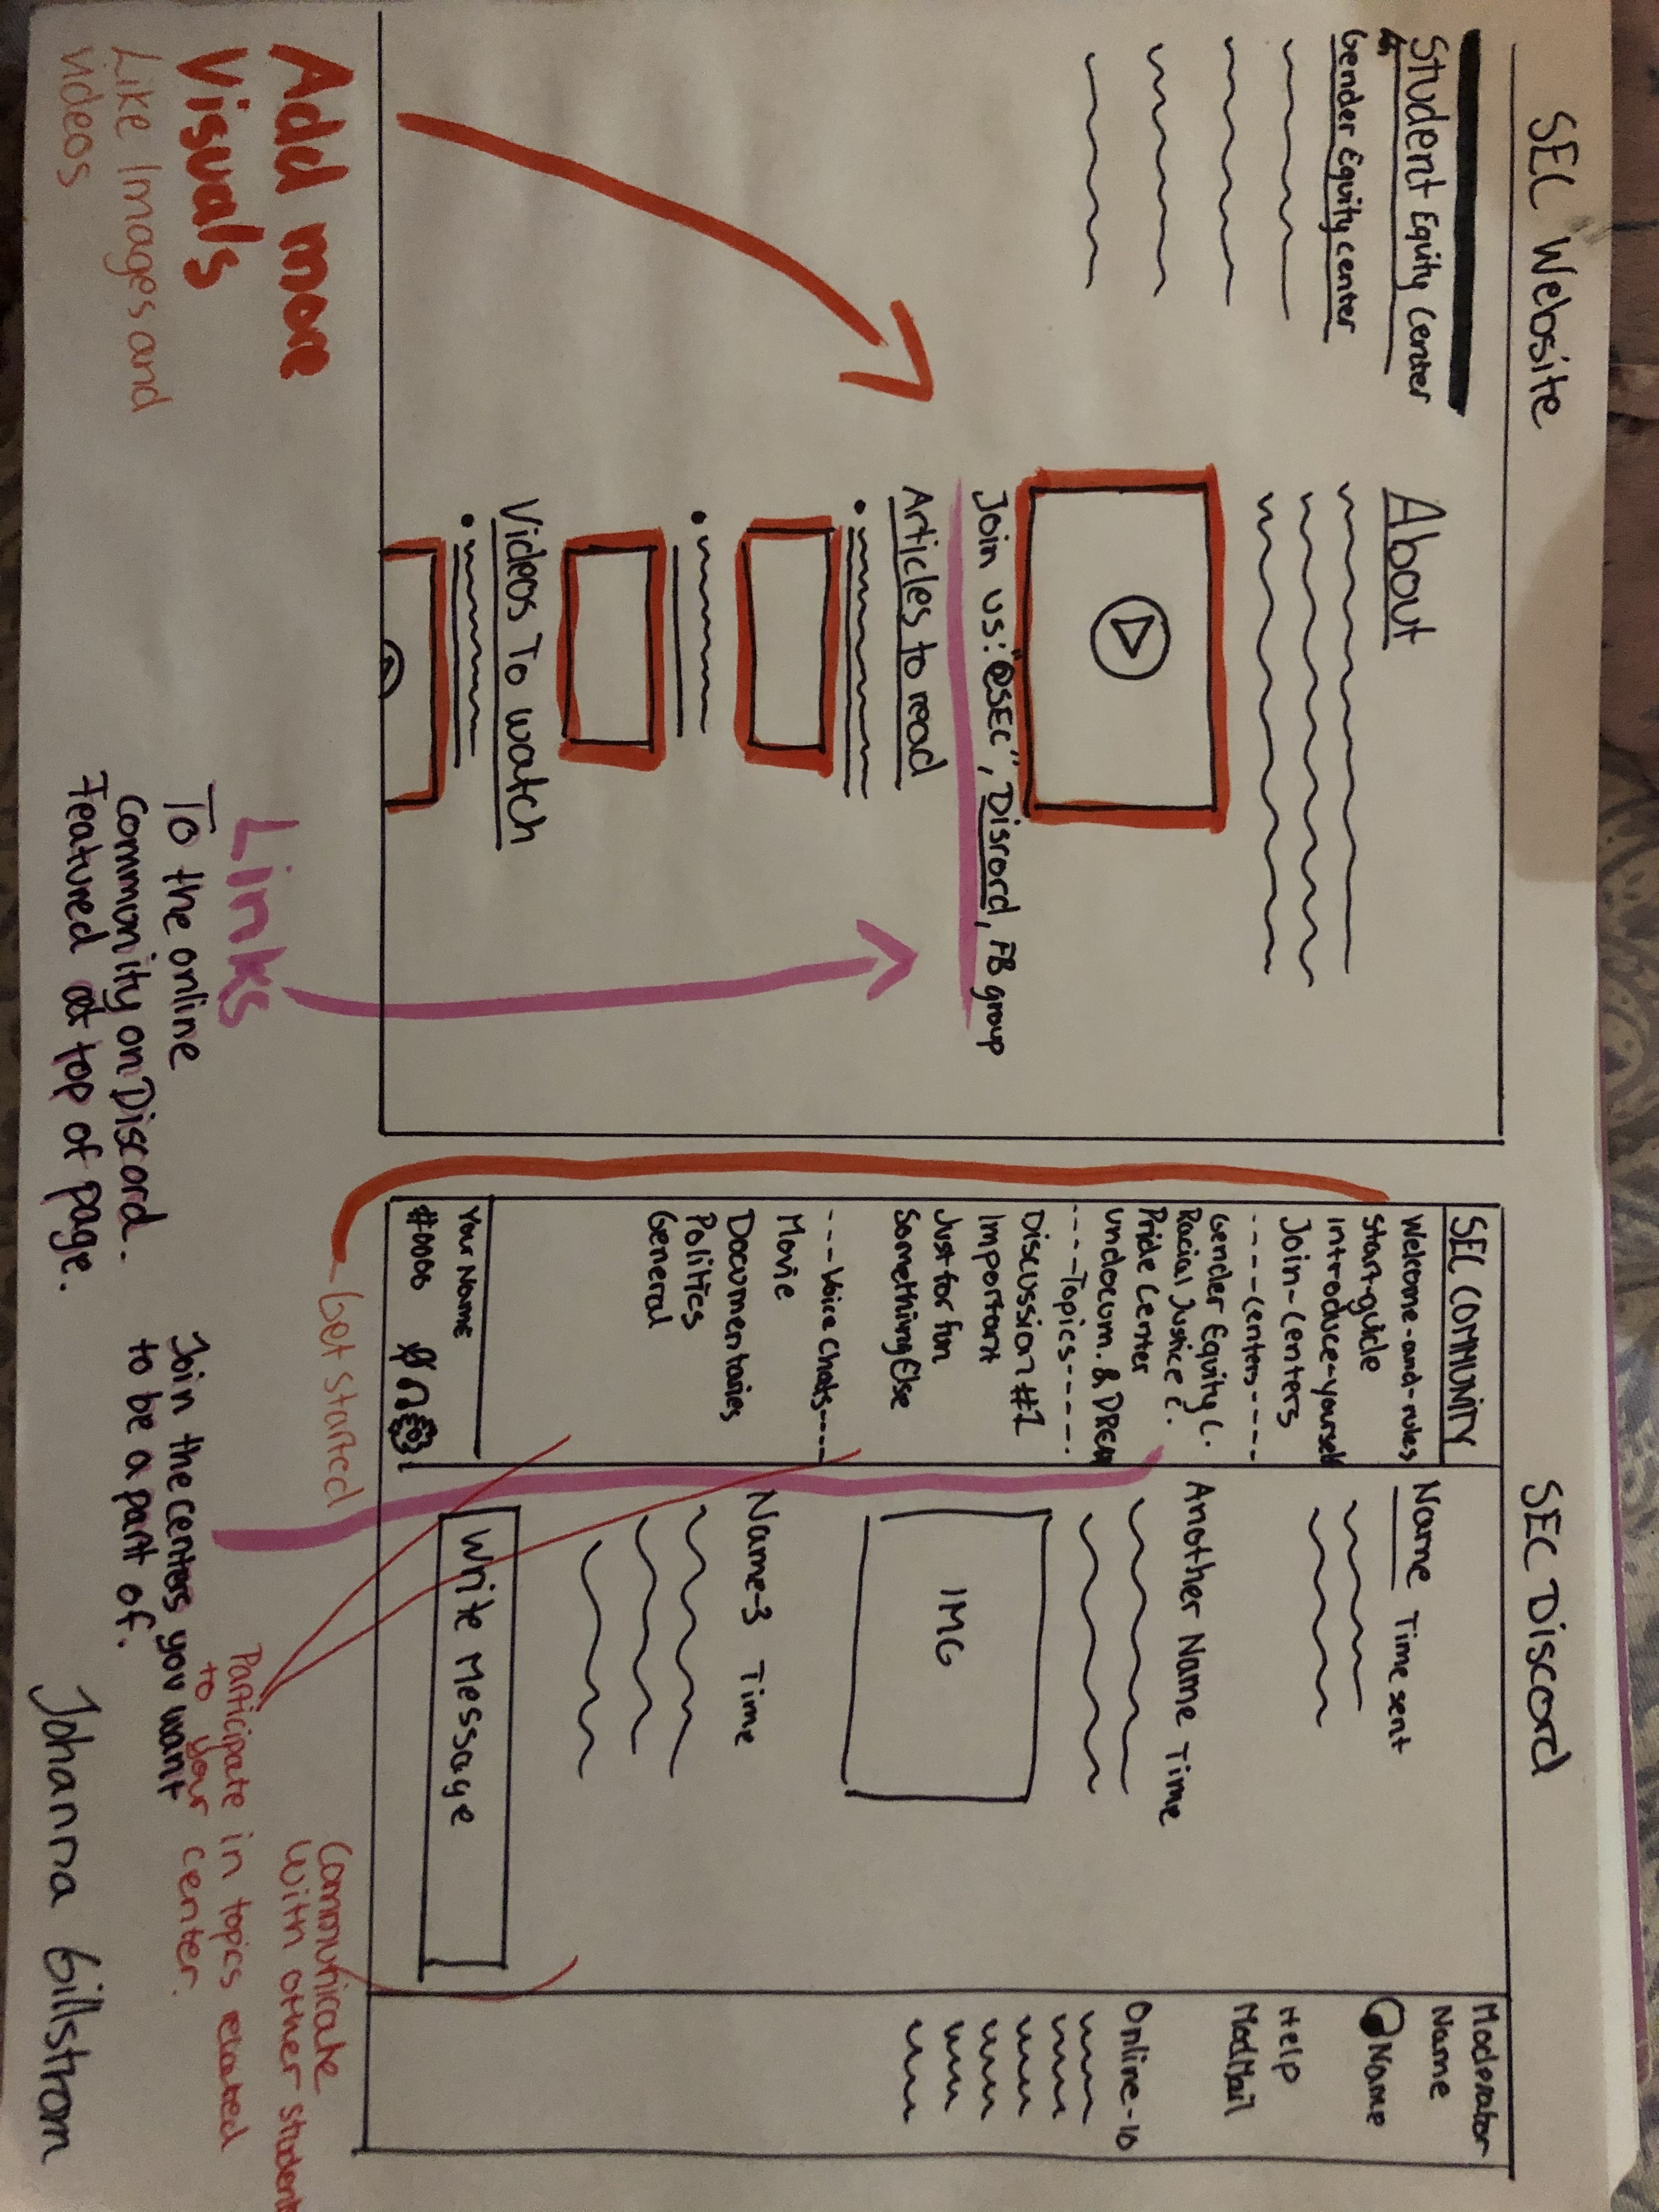 SEC Website
Student Equity Center
Gender Equity center
About
Join us: "@SEC", Disrord, FB group
Articles to read
Videos To watch
Add more
Visuals
Like Images and
videos
Links
To the online
Community on Discord.
Featured at top of page.
SEC Discord
SEC COMMUNITY
Welcome-and-rules
Start-guide
introduce-yourself
Join-Centers
----Centers----
Gender Equity C.
Racial Justice C.
Pride Center
undocum. & DREAM
----Topics-----
Discussion #1
Important
Just for fun
Something Else
---Voice Chats---
Movie
Documentaries
Politics
General
Your Name
#0000
Name Time sent
Another Name Time
IMG
Name-3 Time
Write Message
Moderator
Name
Name
Help
ModMail
Online-10
Get started
Join the centers you want
to be a part of.
Participate in topics related
to your center.
Communicate
with other students
Johanna Gillstrom